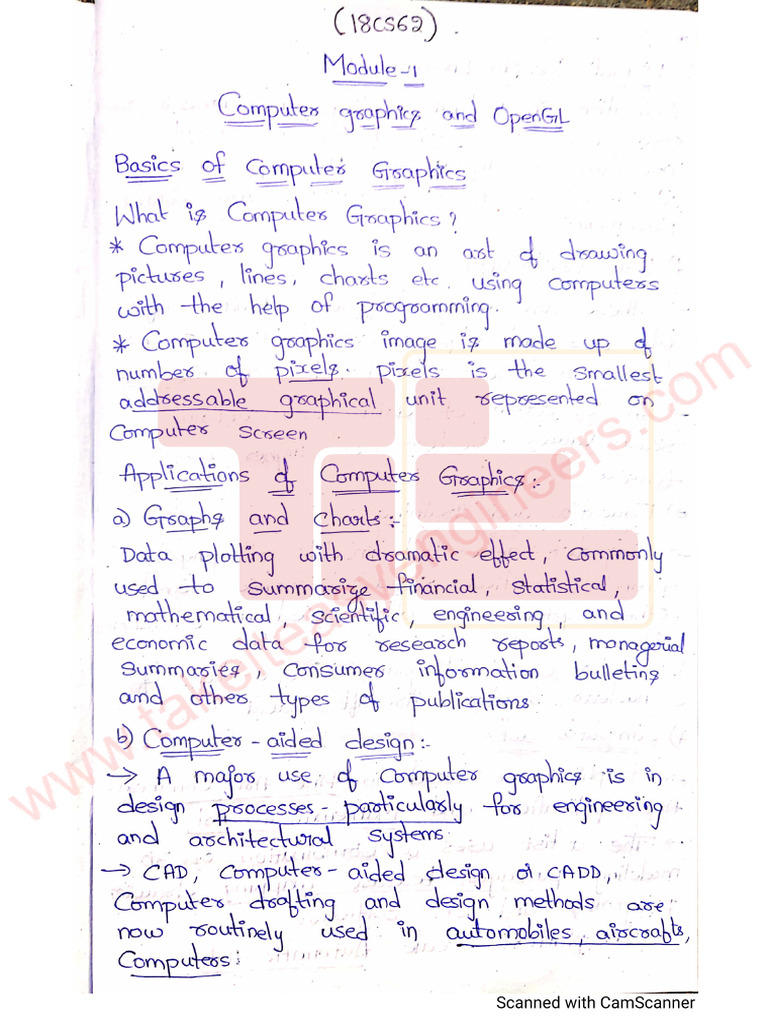 (18CS62).
Module-1
Computer graphics and OpenGL
Basics of Computer Graphics
What is Computer Graphics?
* Computer graphics is an art of drawing
pictures, lines, charts etc. using computers
with the help of programming.
* Computer graphics image is made up of
number of pixels. pixels is the smallest
addressable graphical unit represented on
Computer screen
Applications of Computer Graphics:-
a) Graphs and Charts:-
Data plotting with dramatic effect, commonly
used to summarize financial, statistical,
mathematical, scientific, engineering, and
economic data for research reports, managerial
summaries, consumer information bulletins
and other types of publications.
b) Computer-aided design:-
→ A major use of Computer graphics is in
design processes-particularly for engineering
and architectural systems
→ CAD, Computer-aided design or CADD,
Computer drafting and design methods are
now routinely used in automobiles, aircrafts,
Computers:
www.takeiteasyengineers.com
Scanned with CamScanner